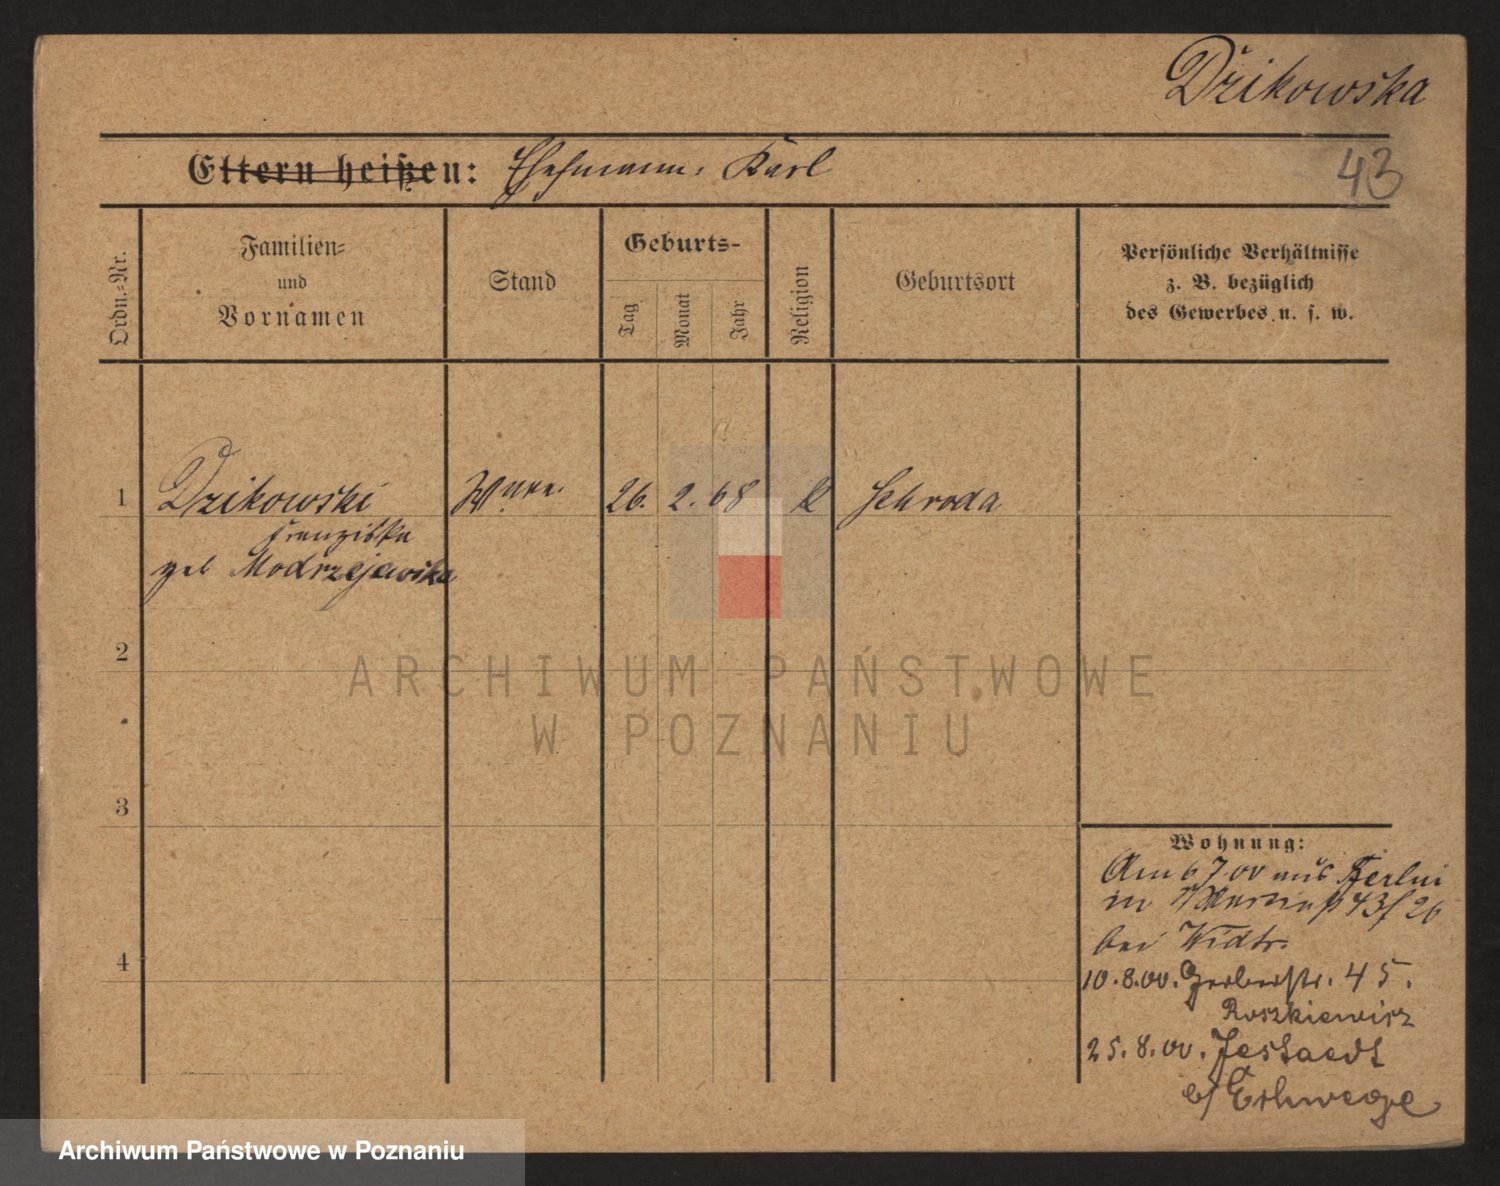 Dzikowska
43
Eltern heißen: Ehemann: Karl
Ordn.-Nr.
Familien-
und
Vornamen
Stand
Geburts-
Tag
Monat
Jahr
Religion
Geburtsort
Persönliche Verhältnisse
z. B. bezüglich
des Gewerbes u. s. w.
1 Dzikowski 26. 2. 68 k Schroda
Franziska
geb Modrzejewska
2
3
4
Wohnung:
Am 6 7.00 aus Berlin
in 43/26
bei
10.8.00. Gerberstr. 45.
Roszkiewicz
25.8.00. Jestaedt
b/ Eschwege
ARCHIWUM PAŃSTWOWE
W POZNANIU
Archiwum Państwowe w Poznaniu